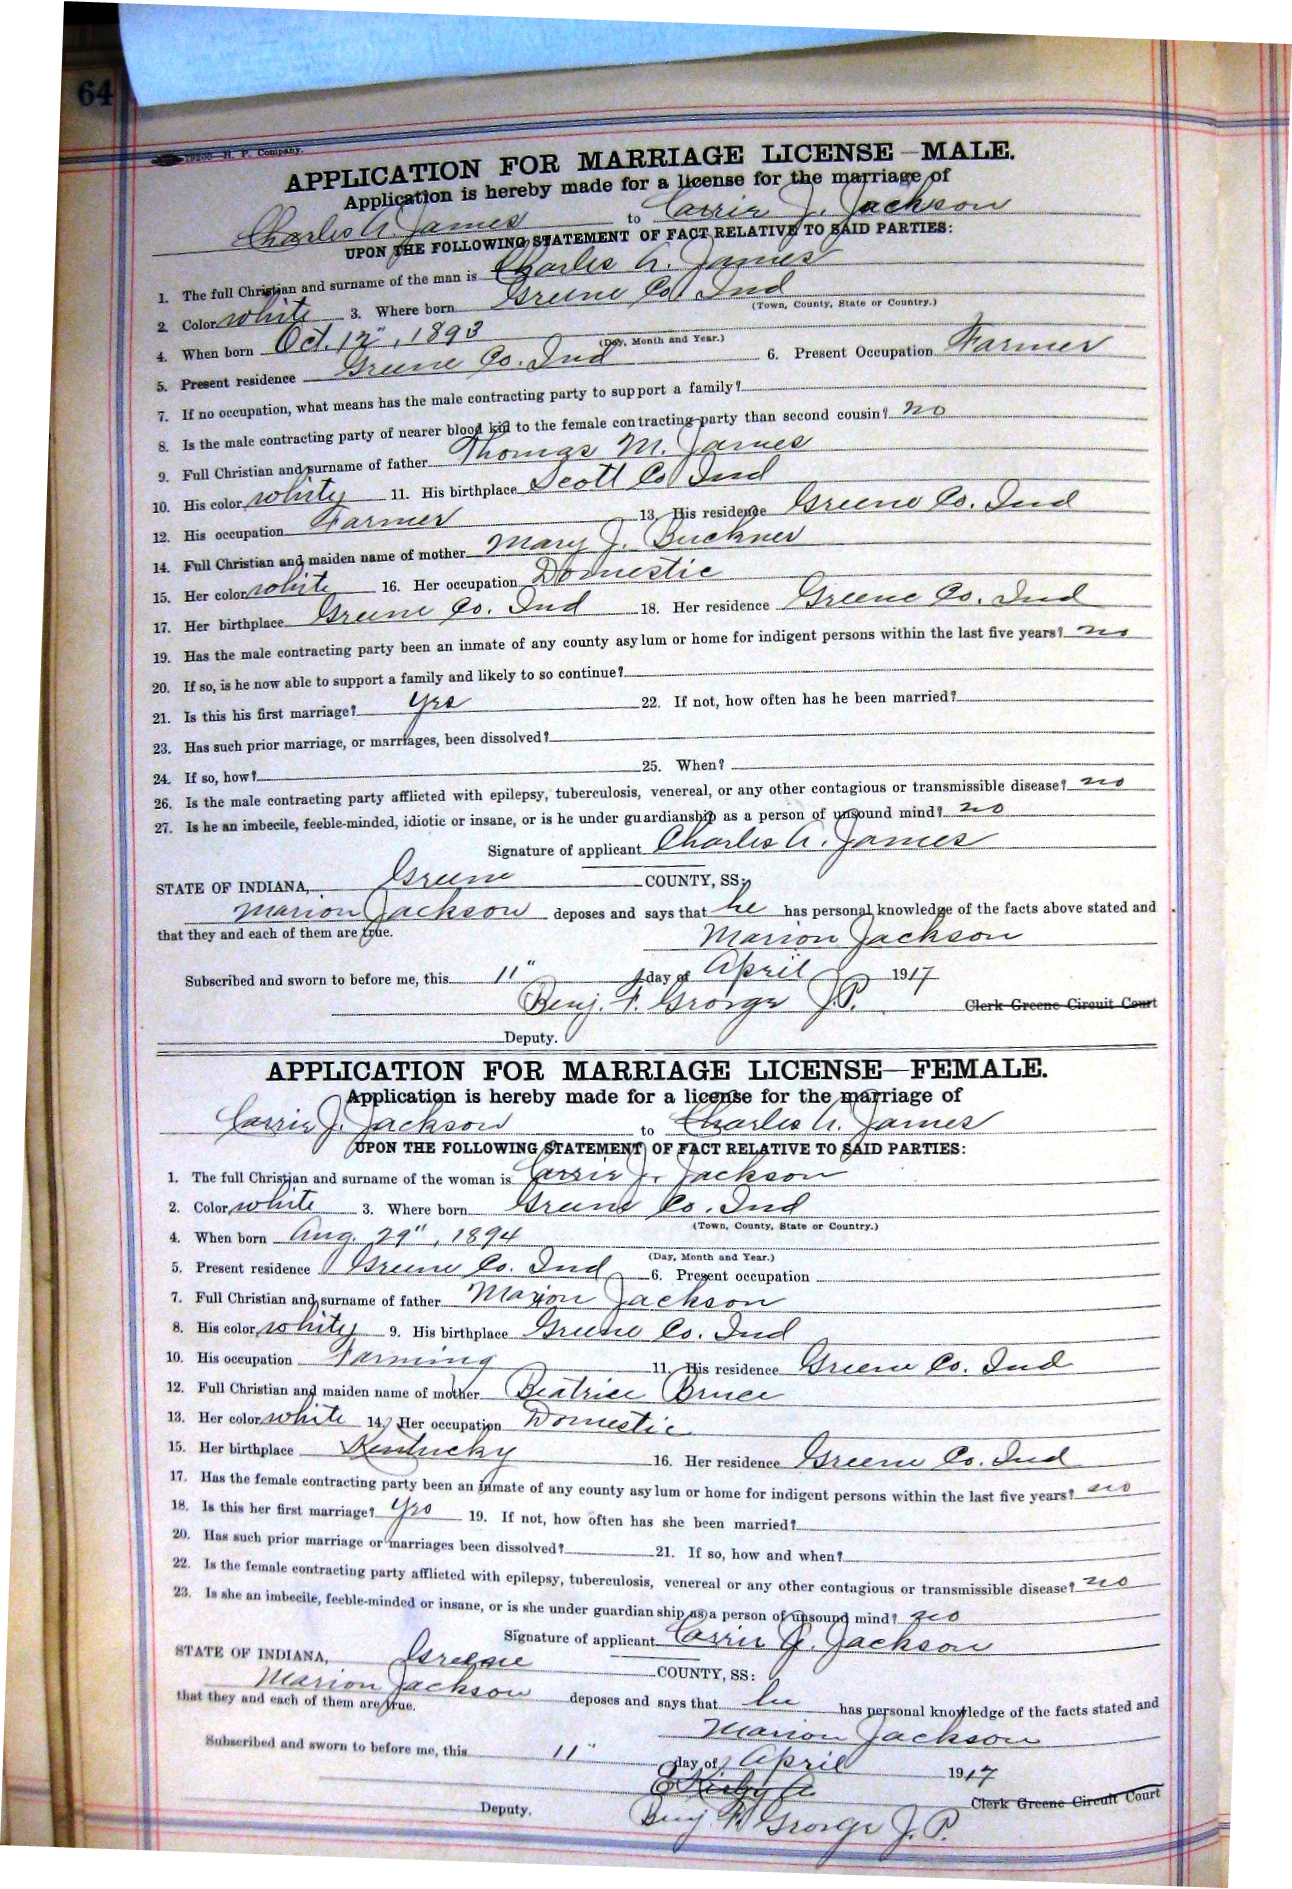 64
12200—H. P. Company.
APPLICATION FOR MARRIAGE LICENSE—MALE.
Application is hereby made for a license for the marriage of
Charles A. James to Carrie J. Jackson
UPON THE FOLLOWING STATEMENT OF FACT RELATIVE TO SAID PARTIES:
1. The full Christian and surname of the man is Charles A. James
2. Color white 3. Where born Greene Co. Ind
(Town, County, State or Country.)
4. When born Oct. 12", 1893
(Day, Month and Year.)
5. Present residence Greene Co. Ind 6. Present Occupation Farmer
7. If no occupation, what means has the male contracting party to support a family?
8. Is the male contracting party of nearer blood kin to the female contracting party than second cousin? no
9. Full Christian and surname of father Thomas M. James
10. His color white 11. His birthplace Scott Co Ind
12. His occupation Farmer 13. His residence Greene Co. Ind
14. Full Christian and maiden name of mother Mary J. Buckner
15. Her color white 16. Her occupation Domestic
17. Her birthplace Greene Co. Ind 18. Her residence Greene Co. Ind
19. Has the male contracting party been an inmate of any county asylum or home for indigent persons within the last five years? no
20. If so, is he now able to support a family and likely to so continue?
21. Is this his first marriage? yes 22. If not, how often has he been married?
23. Has such prior marriage, or marriages, been dissolved?
24. If so, how? 25. When?
26. Is the male contracting party afflicted with epilepsy, tuberculosis, venereal, or any other contagious or transmissible disease? no
27. Is he an imbecile, feeble-minded, idiotic or insane, or is he under guardianship as a person of unsound mind? no
Signature of applicant Charles A. James
STATE OF INDIANA, Greene COUNTY, SS:
Marion Jackson deposes and says that he has personal knowledge of the facts above stated and
that they and each of them are true.
Marion Jackson
Subscribed and sworn to before me, this 11" day of April 1917
Benj. F. George J.P. Clerk Greene Circuit Court
Deputy.
APPLICATION FOR MARRIAGE LICENSE—FEMALE.
Application is hereby made for a license for the marriage of
Carrie J. Jackson to Charles A. James
UPON THE FOLLOWING STATEMENT OF FACT RELATIVE TO SAID PARTIES:
1. The full Christian and surname of the woman is Carrie J. Jackson
2. Color white 3. Where born Greene Co. Ind
(Town, County, State or Country.)
4. When born Aug. 29", 1894
(Day, Month and Year.)
5. Present residence Greene Co. Ind 6. Present occupation
7. Full Christian and surname of father Marion Jackson
8. His color white 9. His birthplace Greene Co. Ind
10. His occupation Farming 11. His residence Greene Co. Ind
12. Full Christian and maiden name of mother Beatrice Bruce
13. Her color white 14. Her occupation Domestic
15. Her birthplace Kentucky 16. Her residence Greene Co. Ind
17. Has the female contracting party been an inmate of any county asylum or home for indigent persons within the last five years? no
18. Is this her first marriage? yes 19. If not, how often has she been married?
20. Has such prior marriage or marriages been dissolved? 21. If so, how and when?
22. Is the female contracting party afflicted with epilepsy, tuberculosis, venereal or any other contagious or transmissible disease? no
23. Is she an imbecile, feeble-minded or insane, or is she under guardianship as a person of unsound mind? no
Signature of applicant Carrie J. Jackson
STATE OF INDIANA, Greene COUNTY, SS:
Marion Jackson deposes and says that he has personal knowledge of the facts stated and
that they and each of them are true.
Marion Jackson
Subscribed and sworn to before me, this 11" day of April 1917
Clerk Greene Circuit Court
Deputy. Benj. F. George J. P.